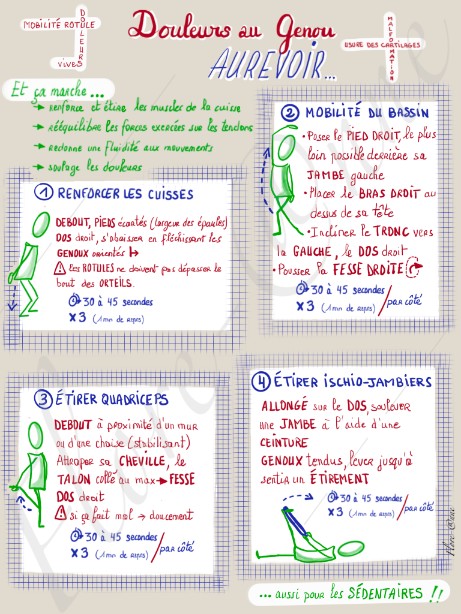 MOBILITÉ ROTULE
DOULEURS
VIVES
Douleurs au Genou
AUREVOIR...
MALFORMATION
USURE DES CARTILAGES
Et ça marche...
→ renforce et étire les muscles de la cuisse
→ rééquilibre les forces exercées sur les tendons
→ redonne une fluidité aux mouvements
→ soulage les douleurs
① RENFORCER LES CUISSES
DEBOUT, PIEDS écartés (largeur des épaules)
DOS droit, s'abaisser en fléchissant les
GENOUX orientés ↦
⚠ Les ROTULES ne doivent pas dépasser le
bout des ORTEILS.
30 à 45 secondes
x 3 (1 min de repos)
② MOBILITÉ DU BASSIN
• Poser le PIED DROIT, le plus
loin possible derrière sa
JAMBE gauche
• Placer le BRAS DROIT au
dessus de sa tête
• Incliner le TRONC vers
la GAUCHE, le DOS droit
• Pousser la FESSE DROITE
30 à 45 secondes
x 3 (1 min de repos) / par côté
③ ÉTIRER QUADRICEPS
DEBOUT à proximité d'un mur
ou d'une chaise (stabilisant)
Attraper sa CHEVILLE, le
TALON collé au max → FESSE
DOS droit
⚠ si ça fait mal → doucement
30 à 45 secondes
x 3 (1 min de repos) / par côté
④ ÉTIRER ISCHIO-JAMBIERS
ALLONGÉ sur le DOS, soulever
une JAMBE à l'aide d'une
CEINTURE
GENOUX tendus, lever jusqu'à
sentir un ÉTIREMENT
30 à 45 secondes
x 3 (1 min de repos) / par côté
... aussi pour les SÉDENTAIRES !!